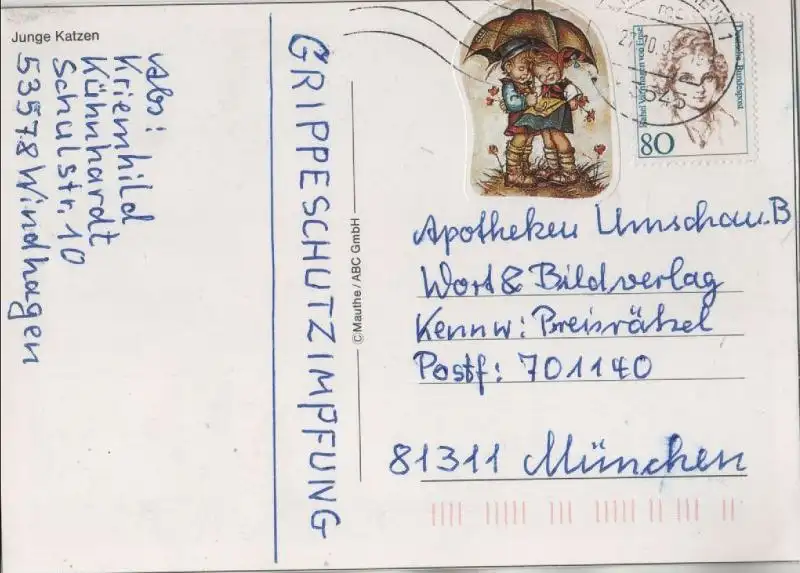 Junge Katzen
Abs:
Kriemhild
Kühnhardt
Schulstr. 10
53578 Windhagen
GRIPPESCHUTZIMPFUNG
© Mauthe / ABC GmbH
27.10.9
545
Rahel Varnhagen von Ense
Deutsche Bundespost
80
Apotheken Umschau.B
Wort & Bildverlag
Kennw: Preisrätsel
Postf: 701140
81311 München